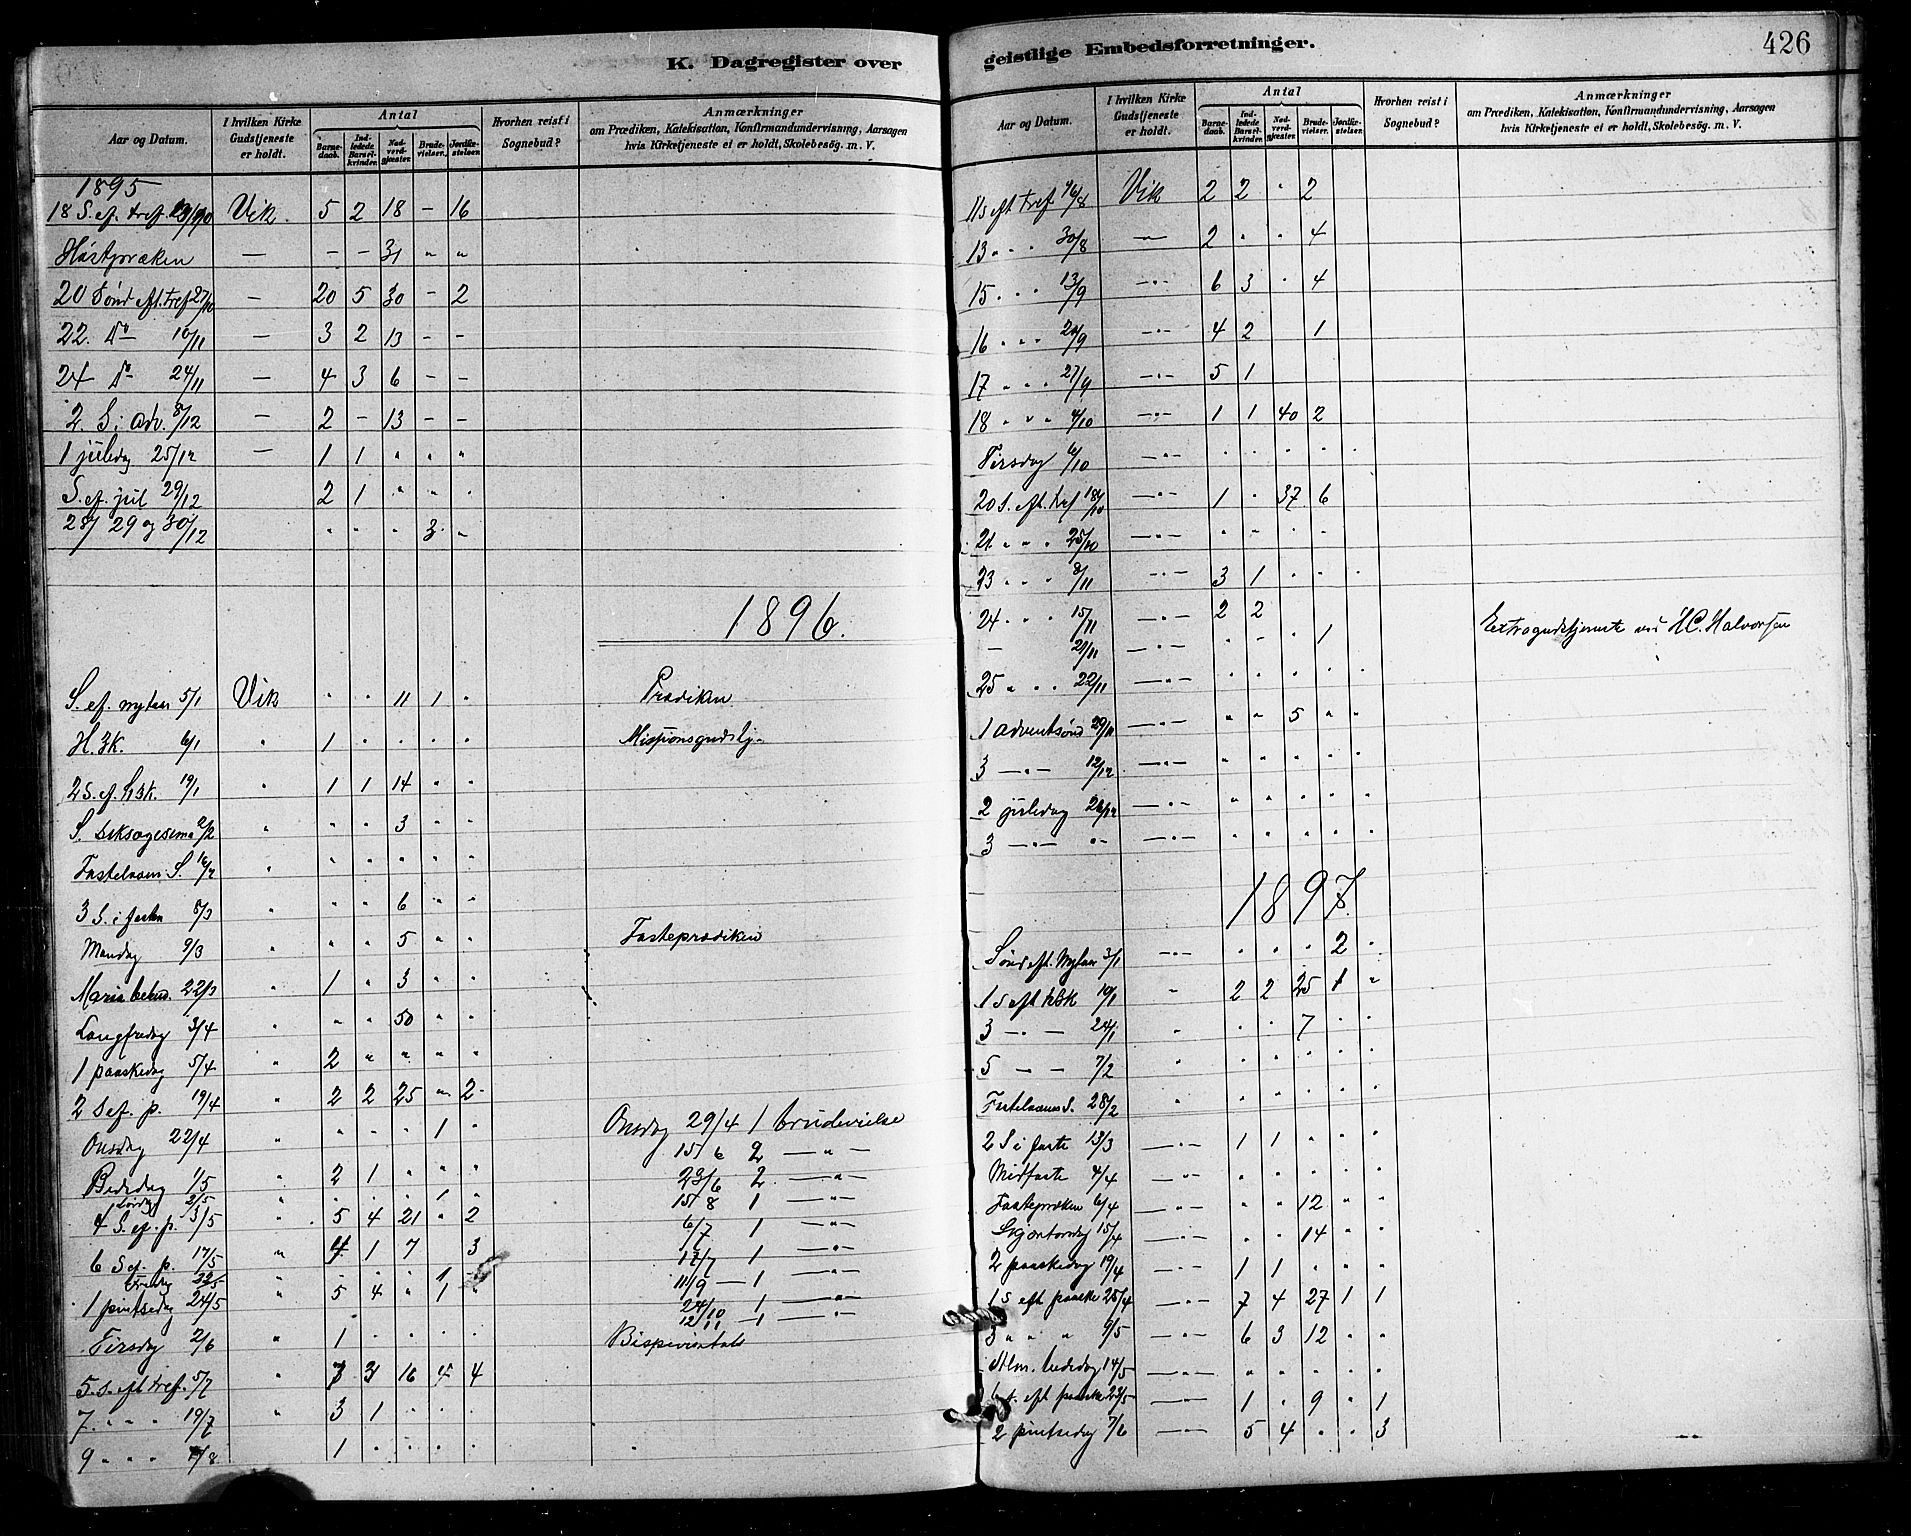 K. Dagregister over
Aar og Datum. I hvilken Kirke Gudstjeneste er holdt. Antal Barnedaab. Indledede Barselkvinder. Nadverdgjester. Brudevielser. Jordfæstelser. Hvorhen reist i Sognebud? Anmærkninger om Prædiken, Katekisation, Konfirmandundervisning, Aarsagen hvis Kirketjeneste ei er holdt, Skolebesög. m. V.
1895
18 S. ef. tref. Vik. 5 2 18 – 16
Høstpræken — – – 31 " "
20 Sønd eft. tref 27/10 — 20 5 30 – 2
22. Do 10/11 — 3 2 13 – –
24 Do 24/11 — 4 3 6 – –
2. S. i Adv. 8/12 — 2 – 13 – –
1 juledag 25/12 — 1 1 " " "
S. ef. jul 29/12 2 1 " " "
28/ 29 og 30/12 " " " 3 "
1896.
S. ef. nytaar 5/1 Vik " " 11 1 " Prædiken
H. 3K. 6/1 " 1 " " " " Missionsgudstj–
2 S. ef. h3k. 19/1 " 1 1 14 " "
S. Seksagesima 2/2 " " " 3 " "
Fastelavns S. 16/2 " " " " " "
3 S. i fasten 8/3 " " " 6 " "
Mandag 9/3 " " " 5 " " Fasteprædiken
Maria bebud. 22/3 " 1 " 3 " "
Langfredag 3/4 " " " 50 " "
1 paaskedag 5/4 " 2 " " " "
2 S ef. p. 19/4 " 2 2 25 " 2
Onsdag 22/4 " " " " 1 " Onsdag 29/4 1 brudevielse
15/6 2 — " —
Bededag 1/5 " 2 1 " " " 23/6 2 — " —
Lørdag 2/5 " " " " 1 " 15/8 1 — " —
4 S. ef. p. 3/5 " 5 4 21 " 2 6/7 1 — " —
6 S ef. p. 17/5 " 4 1 7 3 17/7 1 — " —
Fredag 22/5 " " " " 1 11/9 — 1 — " —
1 pintsedag 24/5 " 5 4 " 1 " 24/10 1 — " —
12/11 — 1 — " —
Tirsdag 2/6 " 1 " " " " Bispevisitats
5. S. eft tref. 5/7 " 7 3 16 4 4
7. " " " 19/7 " 3 1 " " "
9 " " " 1 " " " "
geistlige Embedsforretninger.
426
Aar og Datum. I hvilken Kirke Gudstjeneste er holdt. Antal Barnedaab. Indledede Barselkvinder. Nadverdgjester. Brudevielser. Jordfæstelser. Hvorhen reist i Sognebud? Anmærkninger om Prædiken, Katekisation, Konfirmandundervisning, Aarsagen hvis Kirketjeneste ei er holdt, Skolebesög. m. V.
11 s eft tref 16/8 Vik 2 2 " 2
13 " " 30/8 — " — 2 " " 4
15 " " 13/9 — " — 6 3 " 4
16 " " 20/9 — " — 4 2 1
17 " " " 27/9 — " — 5 1
18 " " " 4/10 — " — 1 1 40 2
Tirsdag 6/10 — " — " " " " "
20 S. eft. tref 18/10 — " — 1 " 37 6
21. " " " 25/10 — " — " " " "
23 " " " 8/11 — " — 3 1 " " "
24 " " 15/11 — " — 2 2 Extragudstjeneste ved H C. Halvorsen
— 21/11 — " — " " " 1
25 " " " 22/11 — " — " " " " "
1 Adventsønd 29/11 — " — " " 5 " "
3 — " — — " — " " " " "
2 juledag 26/12 — " — " " " " "
3 — — " — " — " " " " "
1897.
Sønd eft. Nytaar 3/1 — " — " " " 2 "
1 S eft h3k 10/1 " 2 2 25 1 "
3 — " — 24/1 " " " 7 " "
5 — — 7/2 " " " " " "
Fastelavns S. 28/2 " " " " " "
2 S i faste — " — 1 1 " " "
Midfaste 4/4 — " — " " " " "
Fastepræken 6/4 — " — " " 12 " "
Skjærtorsdag 15/4 — " — " " 14 " "
2 paaskedag 19/4 — " — 1 1 " " "
1 S eft paaske 25/4 — " — 7 4 27 1 1
3 " " " 9/5 — " — 6 3 12 " "
Alm. bededag 14/5 — " — " " " " "
eft paaske — " — 1 " 9 " 1
2 pintsedag 7/6 — " — 5 4 " " 3